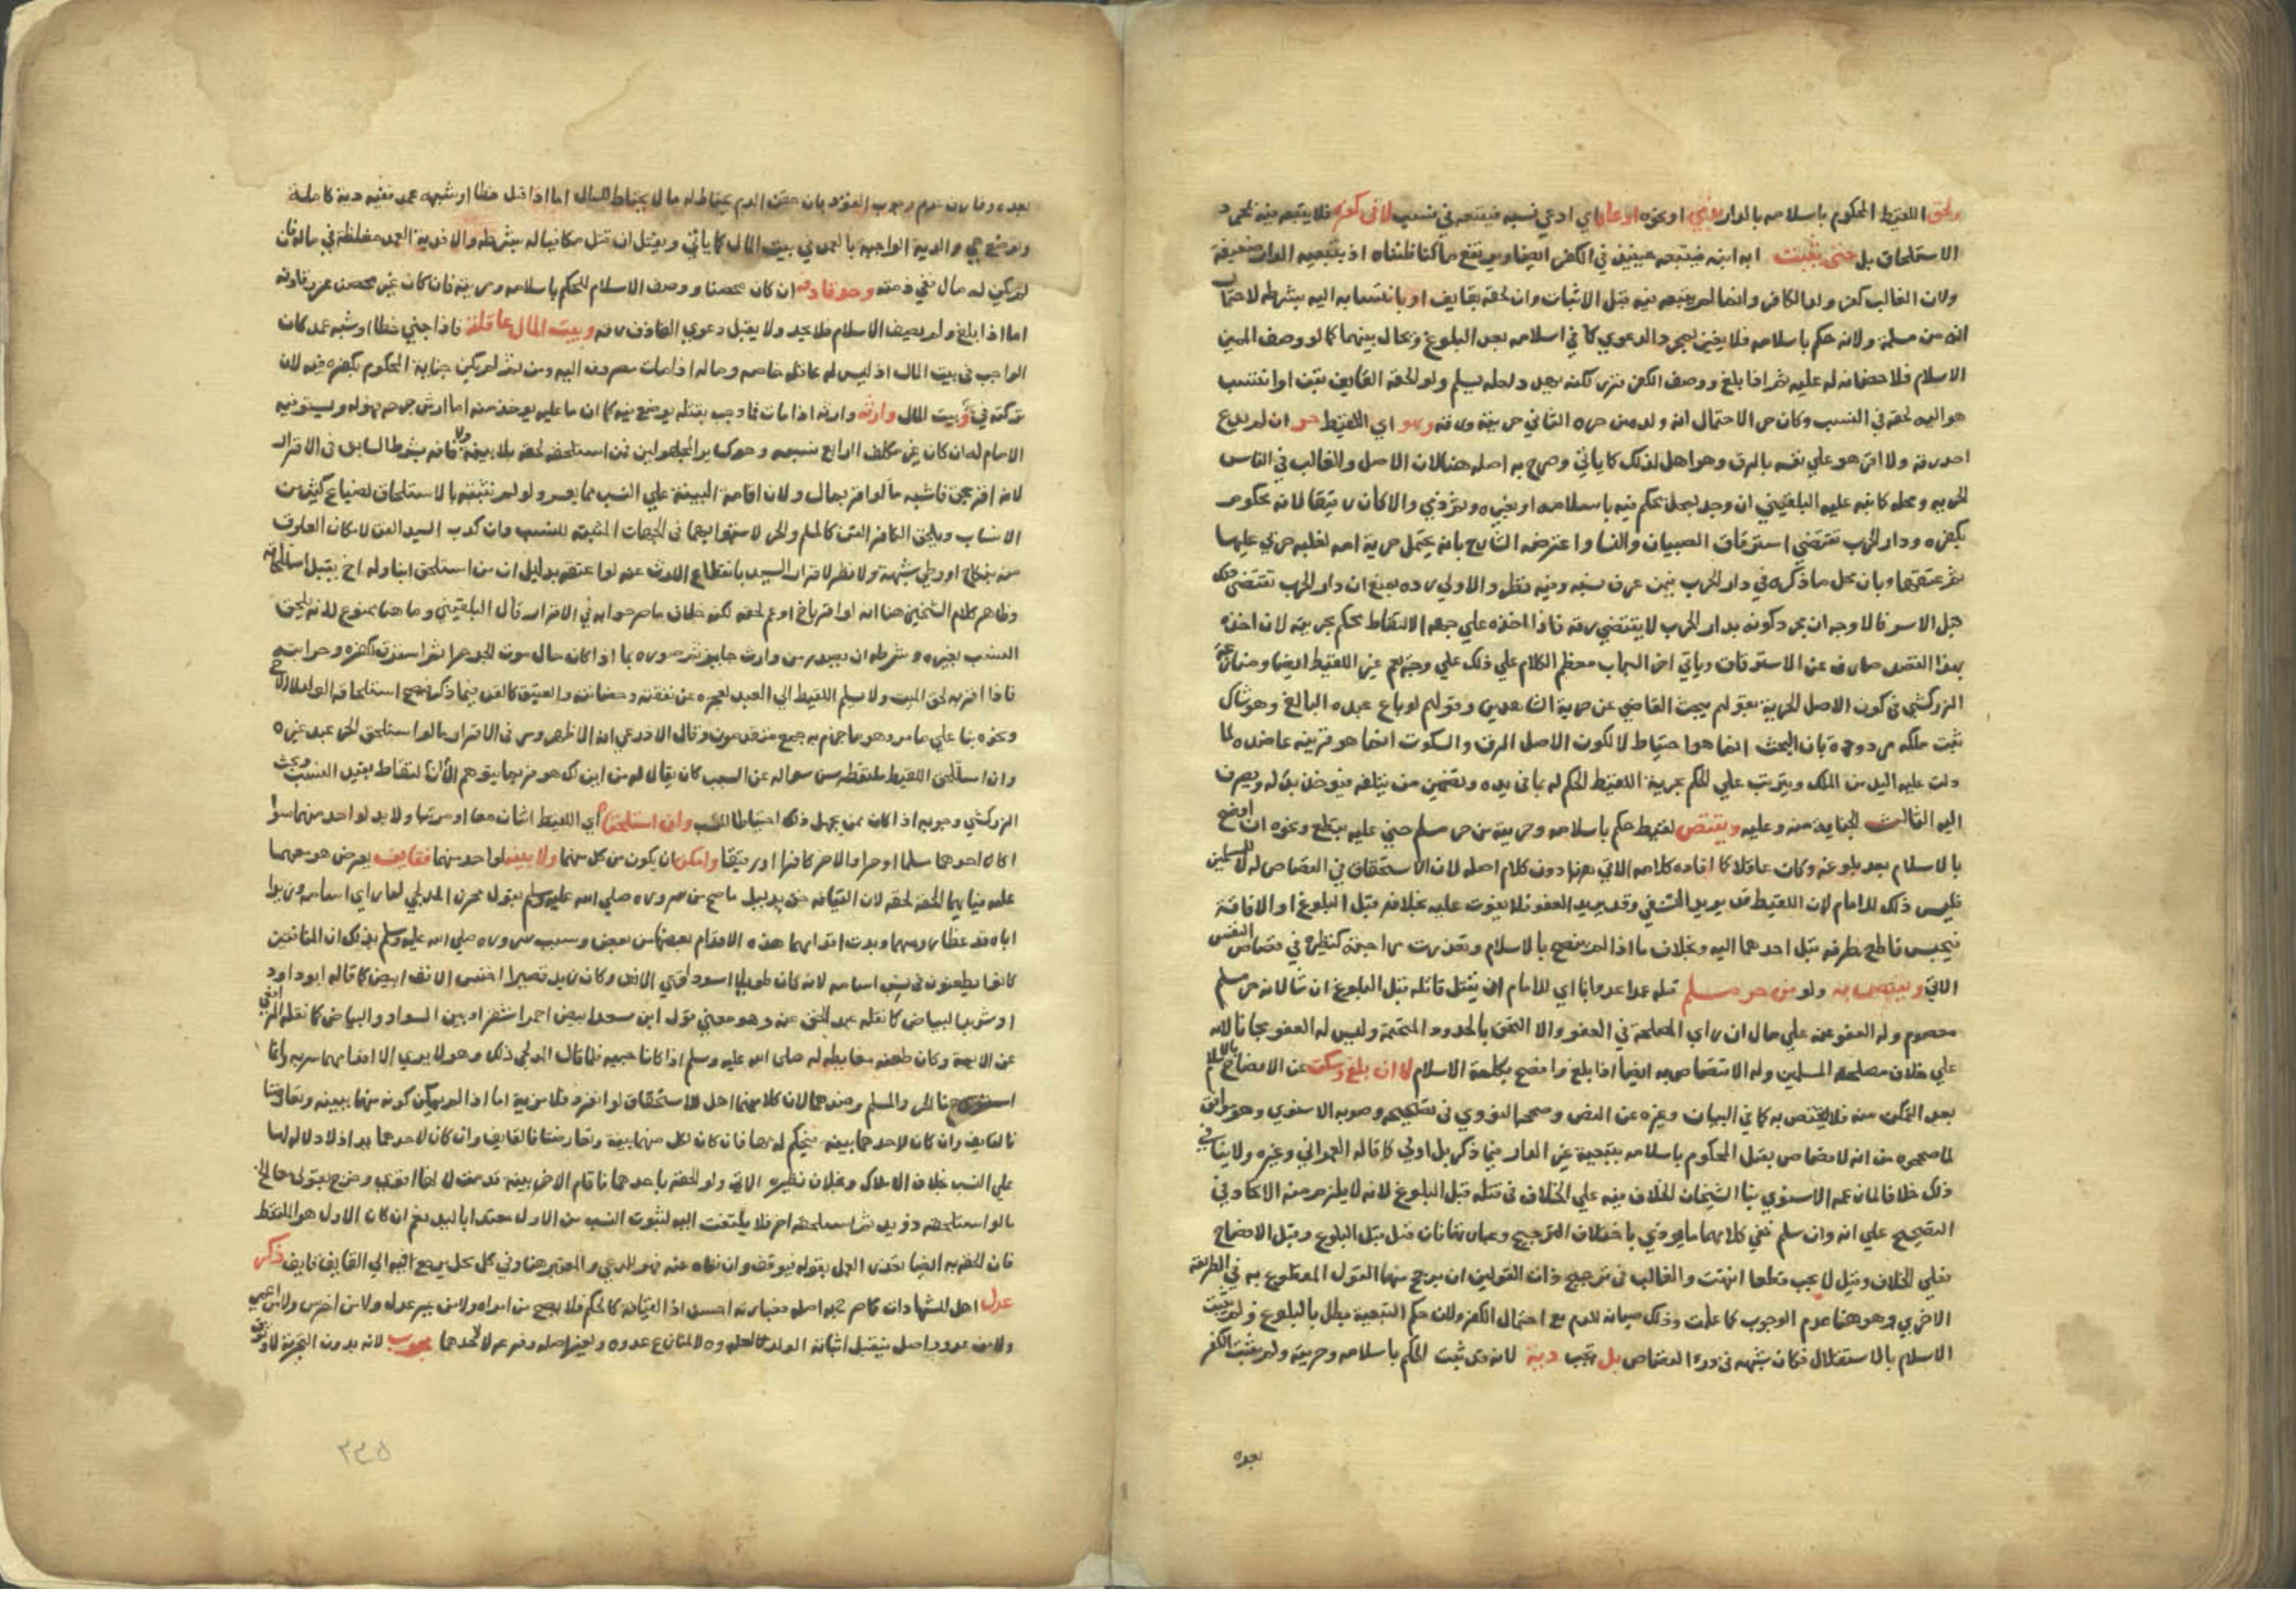 ولحق اللقيط المحكوم باسلامه بالدار ذمي او نحوه ادعاه اي ادعي نسبه فيتبعه في نسب لا في كفره فلا يتبعه فيه بمجرد
الاستلحاق بل حتى يثبت انه ابنه فيتبعه حينئذ في الكفر ايضا ويرتفع ما كنا ظنناه اذ تبعية الدار ضعيفة
ولان الغالب كفر ولد الكافر وانما لم يتبعه فيه قبل الاثبات وان لحقه بقايف او بانتسابه اليه بشرطه لاحتمال
انه من مسلمة ولانه حكم باسلامه فلا يغير بمجرد الدعوي كما في اسلامه بعد البلوغ ويحال بينهما كما لو وصف المميز
الاسلام فلا حضانة له عليه ثم اذا بلغ ووصف الكفر قرر لكنه يهدد لعله يسلم ولو لحقه القايف بثبت او انتسب
هو اليه لحقه في النسب وكان حر الاحتمال انه ولد من حره الثاني حريته ورقه وهو اي اللقيط حر ان لم يدع
احد رقه ولا اقر هو علي نفسه بالرق وهو اهل لذلك كما ياتي وصرح به اصله هنا لان الاصل والغالب في الناس
الحريه ومحله كما نبه عليه البلقيني ان وجد بمحل يحكم فيه باسلامه او بغيره وبقر ذمي والا كان رقيقا لانه محكوم
بكفره ودار الحرب تقتضي استرقاق الصبيان والنسا واعترضه الشارح بانه يحتمل حرية امه لغلبه حربي عليها
ثم عتقها وبان محل ما ذكره في دار الحرب فيمن عرف نسبه وفيه نظر والاولي رده بمنع ان دار الحرب تقتضي ذلك
قبل الاسر فالاوجه ان مجرد كونه بدار الحرب لا يقتضي رقه فاذا اخذه علي جهة الالتقاط يحكم بحريته لان اخذه
بهذا القصد صارف عن الاسترقاق وياتي اخر الباب معظم الكلام علي ذلك علي وجه يعم غير اللقيط ايضا ومنازعة
الزركشي في كون الاصل الحرية بقولهم يبحث القاضي عن حرية الشاهدين وقولهم لو باع عبده البالغ وهو شاك
ثبت ملكه مردودة بان البحث انما هو احتياط لا لكون الاصل الرق والسكوت انما هو قرينة عاضده لما
دلت عليه اليد من الملك ويترتب علي الحكم بحرية اللقيط الحكم له بما في يده وتضمين من يتلفه فيوخذ بدله ويصرف
اليه الثالث الجناية منه وعليه ويقتص لقيط حكم باسلامه وحريته من حر مسلم جني عليه بقطع ونحوه ان افصح
بالاسلام بعد بلوغه وكان عاقلا كما افاده كلامه الاتي هنا دون كلام اصله لان الاستحقاق في القصاص له للمسلمين
فليس ذلك للامام لان اللقيط قد يريد التشفي وقد يريد العفو فلا يفوت عليه بخلافه قبل البلوغ او الافاقة
فيحبس قاطع طرفه قبل احدهما اليه وبخلاف ما اذا لم يفصح بالاسلام وتعذرت مراجعته كنظيره في قصاص النفس
الاتي ويقتص به ولو من حر مسلم قتله عمدا عدوانا اي للامام ان يقتل قاتله قبل البلوغ ان شا لانه حر مسلم
معصوم وله العفو عنه علي مال ان راي المصلحة في العفو والا التحق بالحدود المتحتمة وليس له العفو مجانا لانه
علي خلاف مصلحة المسلمين وله الاقتصاص به ايضا اذا بلغ وافصح بكلمة الاسلام لا ان بلغ وسكت عن الافصاح بالاسلام
بعد التمكن منه فلا يقتص به كما في البيان وغيره عن النص وصححه النووي في تصحيحه وصوبه الاسنوي وهو موافق
لما صححوه من انه لا قصاص بقتل المحكوم باسلامه بتبعية غير الدار فيما ذكر بل اولي كما قاله العمراني وغيره ولا ينافي
ذلك خلافا لما زعمه الاسنوي بنا الشيخان الخلاف فيه علي الخلاف في قتله قبل البلوغ لانه لا يلزم منه الاتحاد في
التصحيح علي انه وان سلم ففي كلامهما ما يوذي باختلاف الترجيح وعبارتهما فان قتل قبل البلوغ وقبل الافصاح
فعلي الخلاف وقيل لا يجب قطعا انتهت والغالب في ترجيح ذات القولين ان يرجح منهما القول المقطوع به في الطريقة
الاخري وهو هنا عدم الوجوب كما علمت وذلك صيانة للدم مع احتمال الكفر ولان حكم التبعية يبطل بالبلوغ ولم يثبت
الاسلام بالاستقلال فكان شبهه في درء القصاص بل تجب دية لانه قد ثبت الحكم باسلامه وحريته ولم يثبت الكفر
بعده
بعده وفارق عدم وجوب القود بان حقن الدم يحتاط له ما لا يحتاط للمال اما اذا قتل خطا او شبهه عمد ففيه دية كاملة
وتوضع هي والدية الواجبة بالعمد في بيت المال كما ياتي ويقتل ان قتل مكافيا له بشرطه والا فدية العمد مغلظة في ماله فان
لم يكن له مال ففي ذمته وحد قاذفه ان كان محصنا ووصف الاسلام للحكم باسلامه وحريته فان كان غير محصن عزر قاذفه
اما اذا بلغ ولم يصف الاسلام فلا يحد ولا يقبل دعوي القاذف رقه وبيت المال عاقلته فاذا جني خطا او شبه عمد كان
الواجب في بيت المال اذ ليس له عاقلة خاصه وماله اذا مات مصروف اليه ومن ثم لم يكن جناية المحكوم بكفره فيه لان
تركته فيء وبيت المال وارثه وارثه اذا مات فما وجب بقتله يوضع فيه كما ان ما عليه يوخذ منه اما ارش جرحه فهو له ويستوفيه
الامام له ان كان غير مكلف الرابع نسبه وهو كساير المجهولين فمن استلحقه لحقه بلا بينة ولا قافه بشرطه السابق في الاقرار
لانه اقر بحق فاشبه ما لو اقر بمال ولان اقامة البينة علي النسب مما يعسر ولو لم نثبته بالاستلحاق لضياع كثير من
الانساب ويلحق الكافر القن كالمسلم والحر لاستوايهما في الجهات المثبته للنسب وان كذب السيد القن لامكان العلوق
منه بنكاح او وطي شبهة ولا نظر لاقرار السيد بانقطاع الارث عنه لو اعتقه بدليل ان من استلحق ابنا وله اخ يقبل استلحاقه
وظاهر كلام الشيخين هنا انه لو اقر باخ او عم لحقه لكنه خلاف ما صرحوا به في الاقرار قال البلقيني وما هنا ممنوع لانه يلحق
النسب بغيره وشرطه ان يصدر من وارث حايز ثم صوره بما اذا كان حال موت الجد حرا ثم استرق لكفره وحرابته
فاذا اقر به لحق الميت ولا يسلم اللقيط الي العبد لعجزه عن نفقته وحضانته والعتيق كالقن فيما ذكر فيصح استلحاقه الولد لا الاخ
ونحوه بنا علي ما مر وهو ما جزم به جمع متقدمون وقال الاذرعي انه الاظهر ومر في الاقرار ما لو استلحق الحر عبد غيره
وان استلحق اللقيط ملتقطه سن سواله عن السبب كان يقال له من اين لك هو فربما يتوهم ان الالتقاط يفيد النسب وبحث
الزركشي وجوبه اذا كان ممن يجهل ذلك احتياطا للنسب وان استلحقه اي اللقيط اثنان معا او مرتبا ولا يد لواحد منهما سوا
اكان احدهما مسلما او حرا والاخر كافرا او رقيقا وامكن ان يكون من كل منهما ولا بينة لواحد منهما فقايف يعرض هو معهما
عليه فبايهما الحقه لحقه لان القيافة حق بدليل ما صح من سروره صلي الله عليه وسلم بقول مجزز المدلجي لما راي اسامه وزيدا
اباه قد غطيا روسهما وبدت اقدامهما هذه الاقدام بعضها من بعض وسبب سروره صلي الله عليه وسلم بذلك ان المنافقين
كانوا يطعنون في نسب اسامه لانه كان طويلا اسود اقني الانف وكان زيد قصيرا اخنس الانف ابيض كما قاله ابو داود
او مشوبا البياض كما نقله عبد الحق عنه وهو معني قول ابن سعد ابيض احمر اشقر او بين السواد والبياض كما نقله الرافعي
عن الايمة وكان طعنهم مغايظه له صلى الله عليه وسلم اذ كانا حبيبه فلما قال المدلجي ذلك وهو لا يري الا اقدامهما سر به وانما
هنا الحر والمسلم وضدهما لان كلا منهما اهل للاستحقاق لو انفرد فلا مزية اما اذا لم يمكن كونه منهما ببينة وتعارضتا
فالقايف وان كان لاحدهما بينة فيحكم له بها فان كان لكل منهما بينة وتعارضتا فالقايف وان كان لاحدهما يد اذ لا دلالة لها
علي النسب بخلاف الاملاك وبخلاف نظيره الاتي ولو الحقه باحدهما فاقام الاخر بينه قدمت لانها اقوي وخرج بقولي معا الخ
ما لو استلحقه ذو يد ثم استلحقه اخر فلا يلتفت اليه لثبوت النسب من الاول معتضدا باليد نعم ان كان الاول هو الملتقط
فان الحقه به ايضا تعذر العمل بقوله فيوقف وان نفاه عنه فهو للمدعي والمعتبر هنا وفي كل محل يرجع فيه الي القايف قايف ذكر
عدل اهل للشهادات كما صرح به اصله فعبارته احسن اذ القيافة كالحكم فلا يصح من امراه ولا من غير عدل ولا من اخرس ولا من اعمي
ولا من عدو واصل فيقبل اثباته الولد لا لعدوه لا لمنازع عدوه وبغير اصله وفرعه لا لاحدهما مجرب لانه بدون التجربة لا وثوق
٢٣٥